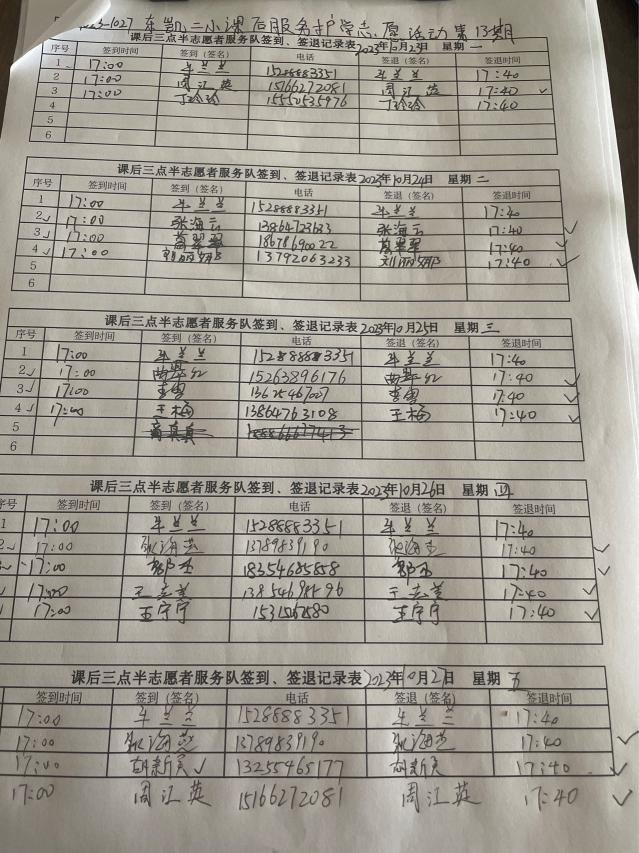 1027 东凯二小课后服务护学志愿活动第13期
课后三点半志愿者服务队签到、签退记录表 2023年10月23日 星期一
序号 签到时间 签到（签名） 电话 签退（签名） 签退时间
1 17:00 牟兰兰 15288883351 牟兰兰 17:40
2 17:00 周江英 15166272081 周江英 17:40
3 17:00 丁玲玲 15550535976 丁玲玲 17:40
4
5
6
课后三点半志愿者服务队签到、签退记录表 2023年10月24日 星期二
序号 签到时间 签到（签名） 电话 签退（签名） 签退时间
1 17:00 牟兰兰 15288883351 牟兰兰 17:40
2 17:00 张海云 张海云 17:40
3 17:00 18678690022 17:40
4 17:00 刘丽娜 13792063233 刘丽娜 17:40
5
6
课后三点半志愿者服务队签到、签退记录表 2023年10月25日 星期三
序号 签到时间 签到（签名） 电话 签退（签名） 签退时间
1 17:00 牟兰兰 15288883351 牟兰兰 17:40
2 17:00 15263896176 17:40
3 17:00 李雪 13625467007 李雪 17:40
4 17:00 王梅 13864763108 王梅 17:40
5
6
课后三点半志愿者服务队签到、签退记录表 2023年10月26日 星期四
序号 签到时间 签到（签名） 电话 签退（签名） 签退时间
1 17:00 牟兰兰 15288883351 牟兰兰 17:40
17:00 13789839190 17:40
17:00 18354685858 17:40
17:00 17:40
17:00 王宁宁 王宁宁 17:40
课后三点半志愿者服务队签到、签退记录表 2023年10月27日 星期五
签到时间 签到（签名） 电话 签退（签名） 签退时间
17:00 牟兰兰 15288883351 牟兰兰 17:40
17:00 13789839190 17:40
17:00 胡新美 13255465177 胡新美 17:40
17:00 周江英 15166272081 周江英 17:40